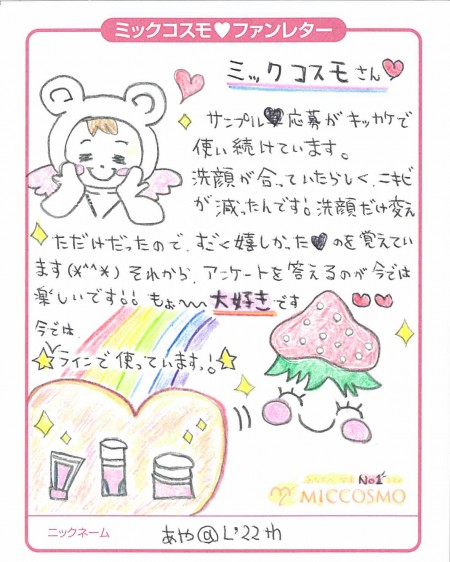 ミックコスモ♥ファンレター
ミックコスモさん♥
サンプル♥応募がキッカケで
使い続けています。
洗顔が合っていたらしく、ニキビ
が減ったんです!洗顔だけ変え
ただけだったので、すごく嬉しかった♥のを覚えてい
ます(*^^*)それから、アンケートを答えるのが今では
楽しいです!!もぉ〜大好きです
今では
☆ラインで使っています!☆
No1
MICCOSMO
ニックネーム
あや@L'22th